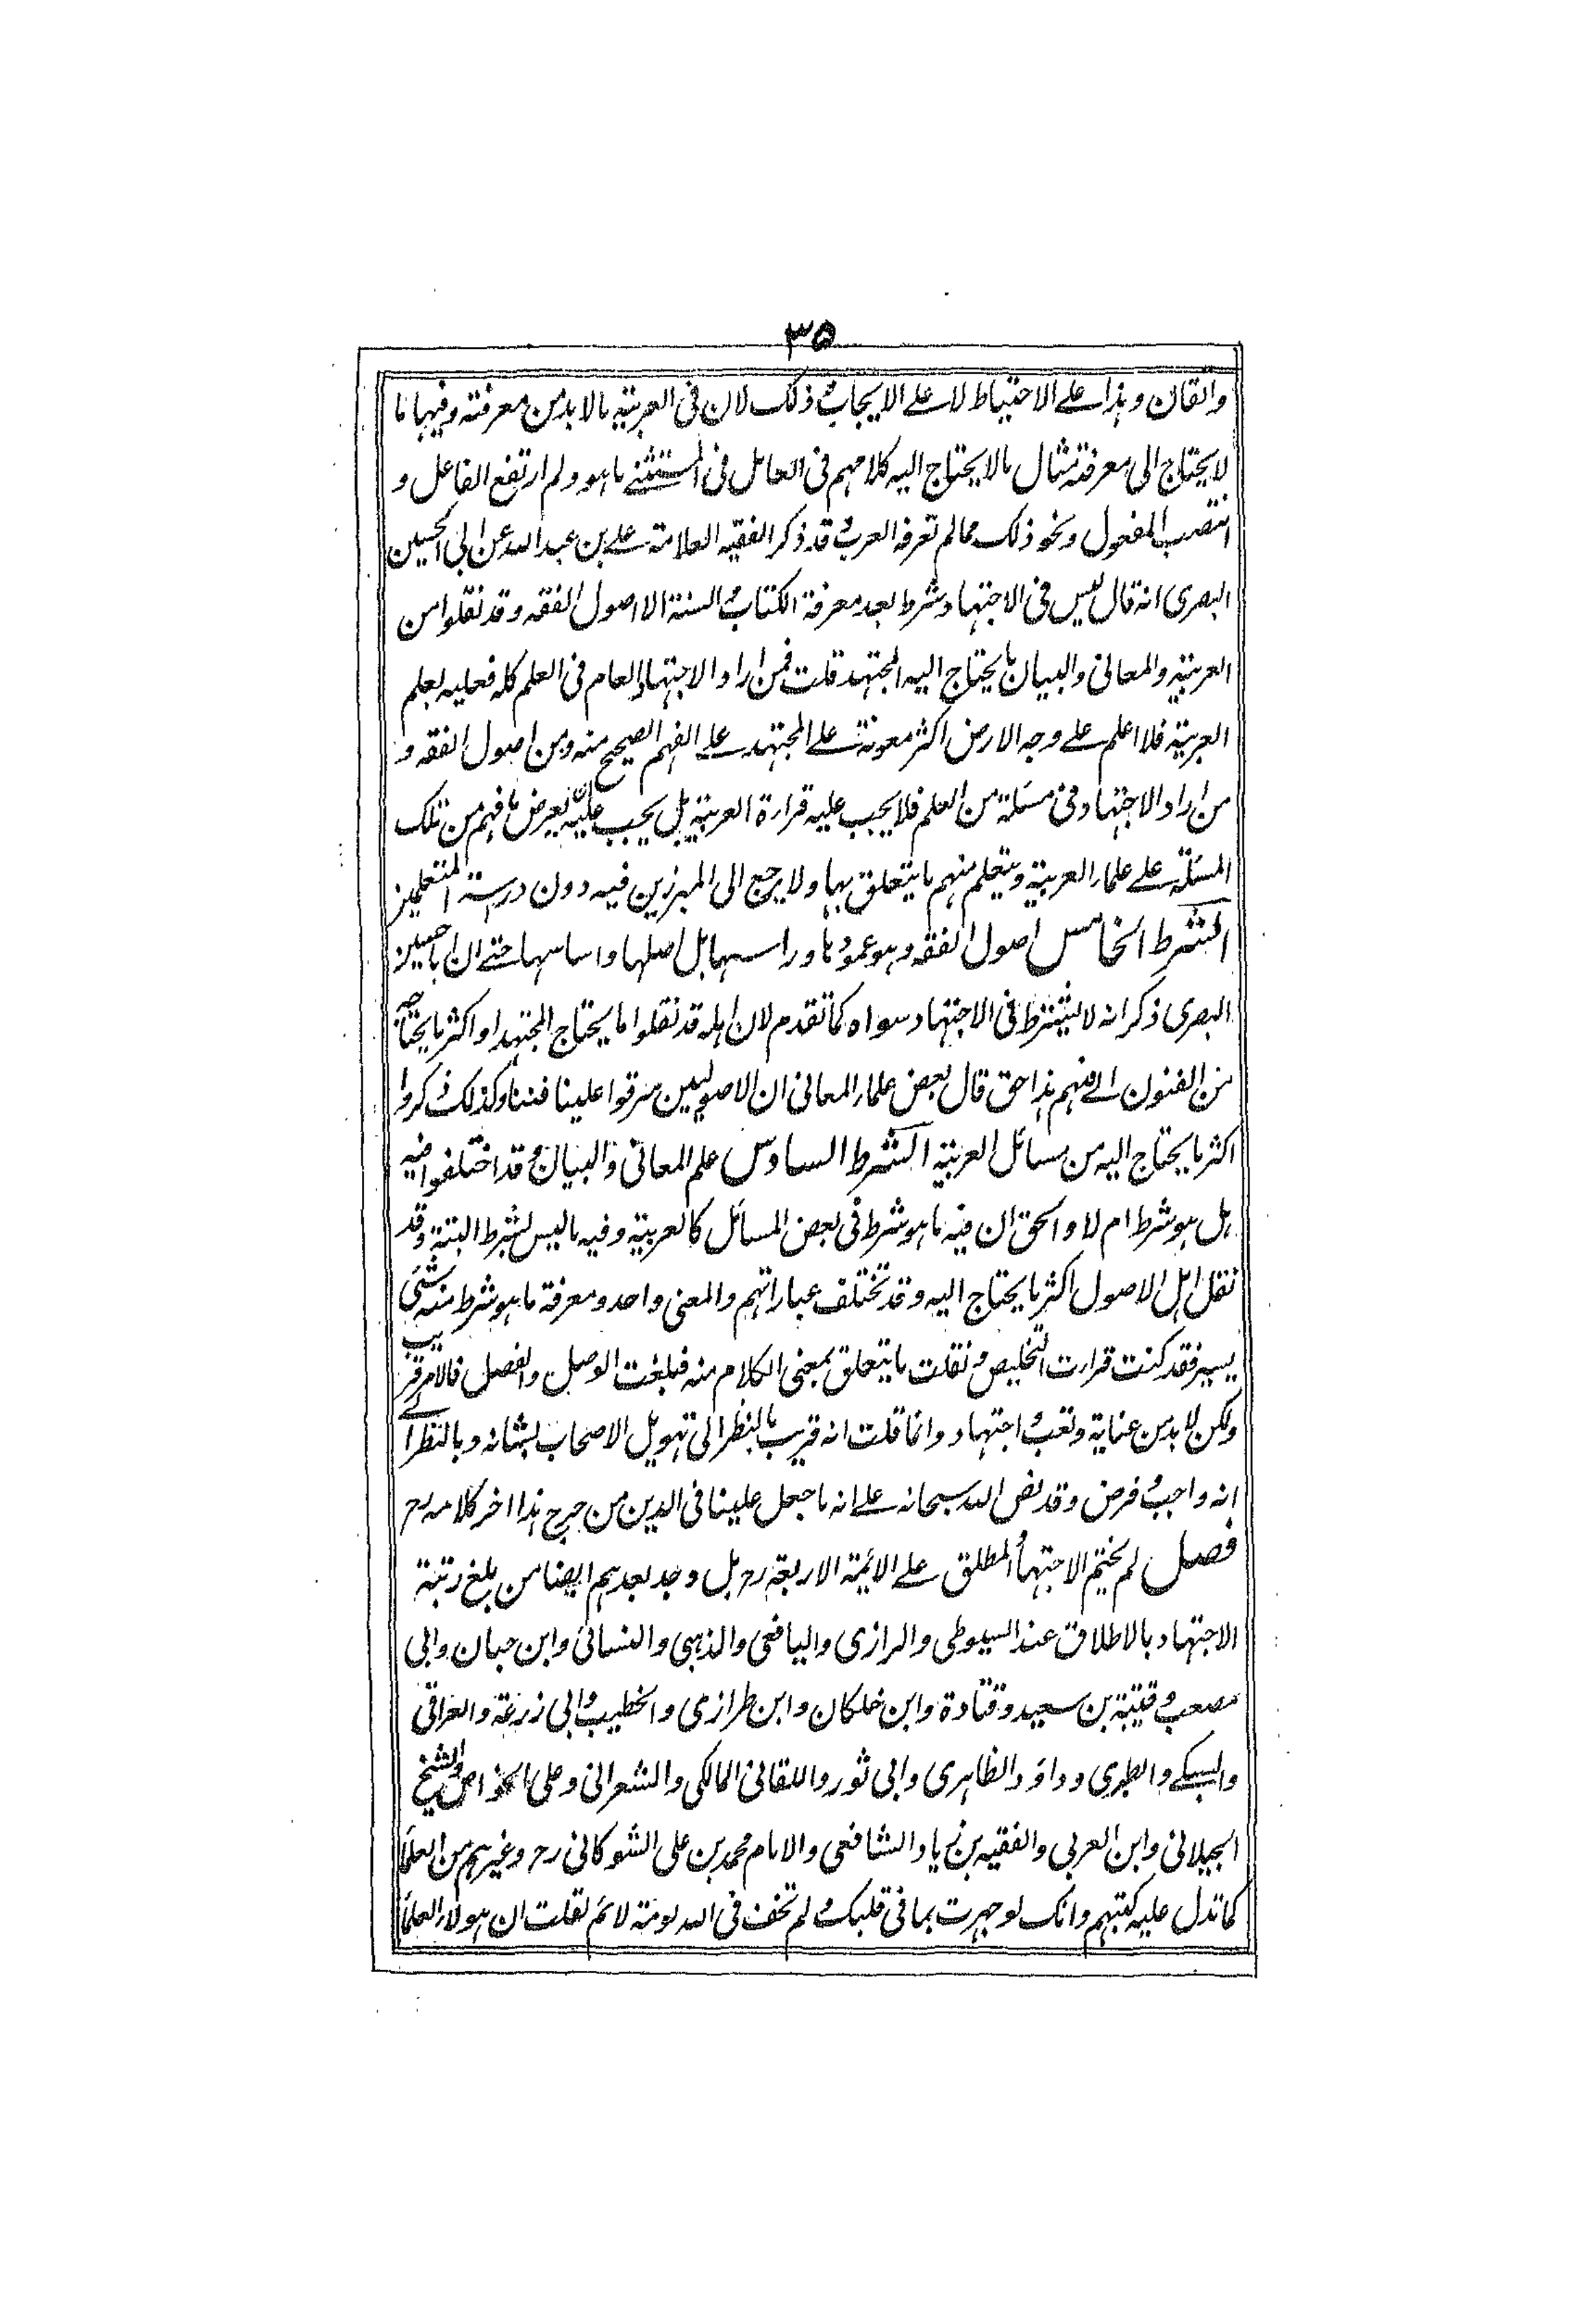 ٣٥
واتقان وهذا على الاحتياط لا على الايجاب وذلك لان فى العربية مالابد من معرفته وفيها ما
لا يحتاج الى معرفته مثال مالا يحتاج اليه كلامهم فى العامل فى المستثنى ما هو ولم ارتفع الفاعل و
انتصب المفعول ونحو ذلك مما لم تعرفه العرب وقد ذكر الفقيه العلامة على بن عبد الله عن ابى الحسين
البصرى انه قال ليس فى الاجتهاد شرط بعد معرفة الكتاب والسنة الا اصول الفقه وقد نقلوا من
العربية والمعانى والبيان ما يحتاج اليه المجتهد قلت فمن اراد الاجتهاد العام فى العلم كله فعليه بعلم
العربية فلا اعلم على وجه الارض اكثر معونة على المجتهد على الفهم الصحيح منه ومن اصول الفقه و
من اراد الاجتهاد فى مسئلة من العلم فلا يجب عليه قراءة العربية بل يجب عليه ان يعرض ما فهم من تلك
المسئلة على علماء العربية ويتعلم منهم ما يتعلق بها ولا يرجع الى المبرزين فيه دون درسة المتعلمين
الشرط الخامس اصول الفقه وهو عمودها وراسها بل اصلها واساسها حتى ان ابا حسين
البصرى ذكر انه لا يشترط فى الاجتهاد سواه كما تقدم لان اهله قد نقلوا ما يحتاج المجتهد او اكثر ما يحتاج
من الفنون الى فنهم هذا حق قال بعض علماء المعانى ان الاصوليين سرقوا علينا فننا وكذلك ذكروا
اكثر ما يحتاج اليه من مسائل العربية الشرط السادس علم المعانى والبيان وقد اختلفوا فيه
هل هو شرط ام لا والحق ان فيه ما هو شرط فى بعض المسائل كالعربية وفيه ما ليس بشرط البتة وقد
نقل اهل الاصول اكثر ما يحتاج اليه وقد تختلف عباراتهم والمعنى واحد ومعرفة ما هو شرط منه شئ
يسير فقد كنت قرات التخليص ونقلت ما يتعلق بمعنى الكلام منه فبلغت الوصل والفصل فالامر قريب
ولكن لابد من عناية وتعب واجتهاد وانما قلت انه قريب بالنظر الى تهويل الاصحاب بشانه وبالنظر الى
انه واجب وفرض وقد نص الله سبحانه على انه ما جعل علينا فى الدين من حرج هذا اخر كلامه رح
فصل لم يختم الاجتهاد المطلق على الائمة الاربعة رح بل وجد بعدهم ايضا من بلغ رتبة
الاجتهاد بالاطلاق عند السيوطى والرازى واليافعى والذهبى والنسائى وابن حبان وابى
مصعب وقتيبة بن سعيد وقتادة وابن خلكان وابن طرازى والخطيب وابى زرعة والعراقى
والسبكى والطبرى وداؤد الظاهرى وابى ثور واللقانى المالكى والشعرانى وعلى الخواص والشيخ
الجيلانى وابن العربى والفقيه بن زياد الشافعى والامام محمد بن على الشوكانى رح وغيرهم من العلماء
كما تدل عليه كتبهم وانك لو جهرت بما فى قلبك ولم تخف فى الله لومة لائم لقلت ان هولاء العلماء